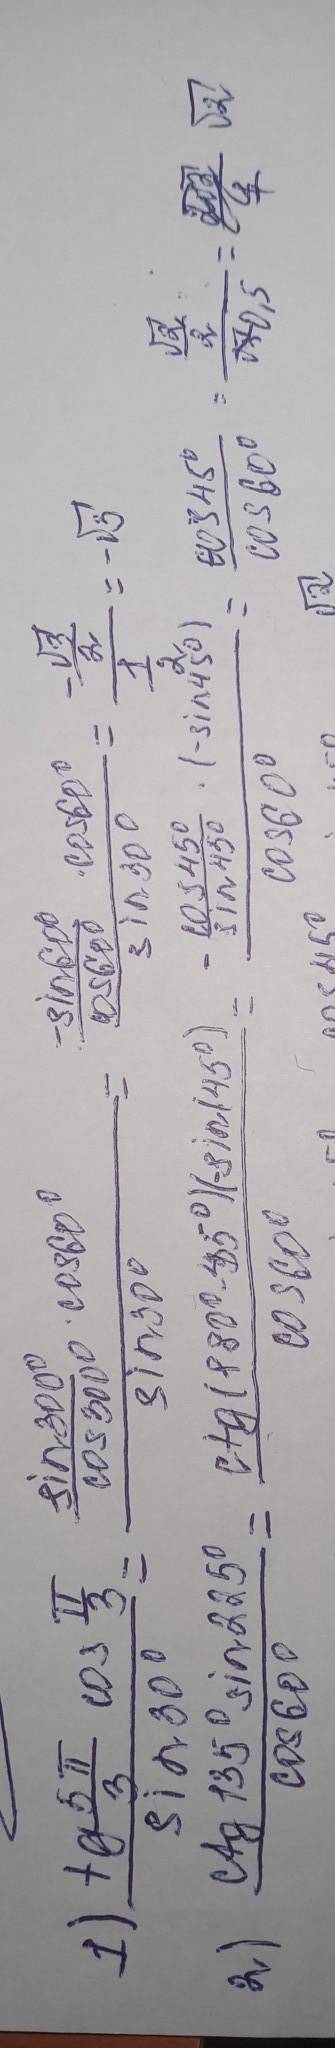 1) tg 5π/3 cos π/3 / sin 30° = sin 300°/cos 300° · cos 60° / sin 30° = -sin 60°/cos 60° · cos 60° / sin 30° = -√3/2 / 1/2 = -√3
2) ctg 135° sin 225° / cos 60° = ctg (180° - 45°)(-sin(45°) / cos 60° = - cos 45°/sin 45° · (-sin 45°) / cos 60° = cos 45° / cos 60° = √2/2 / 0,5 = √2
cos 45° √2